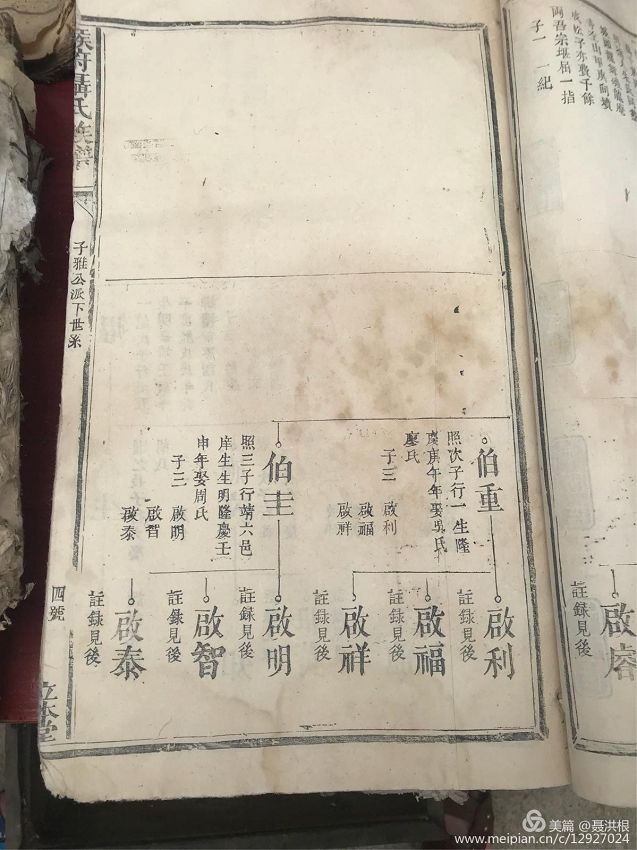 子一 一紀
両吾宗堪屈一指
伯重
照次子行一生隆
慶庚午年娶吳氏
廖氏
子三 啟利
啟福
啟祥
伯圭
照三子行靖六邑
庠生生明隆慶壬
申年娶周氏
子三 啟明
啟智
啟泰
啟睿
註錄見後
啟利
註錄見後
啟福
註錄見後
啟祥
註錄見後
啟明
註錄見後
啟智
註錄見後
啟泰
註錄見後
聶氏族譜
子雅公派下世系
四號
立本堂
美篇 @聂洪根
www.meipian.cn/c/12927024